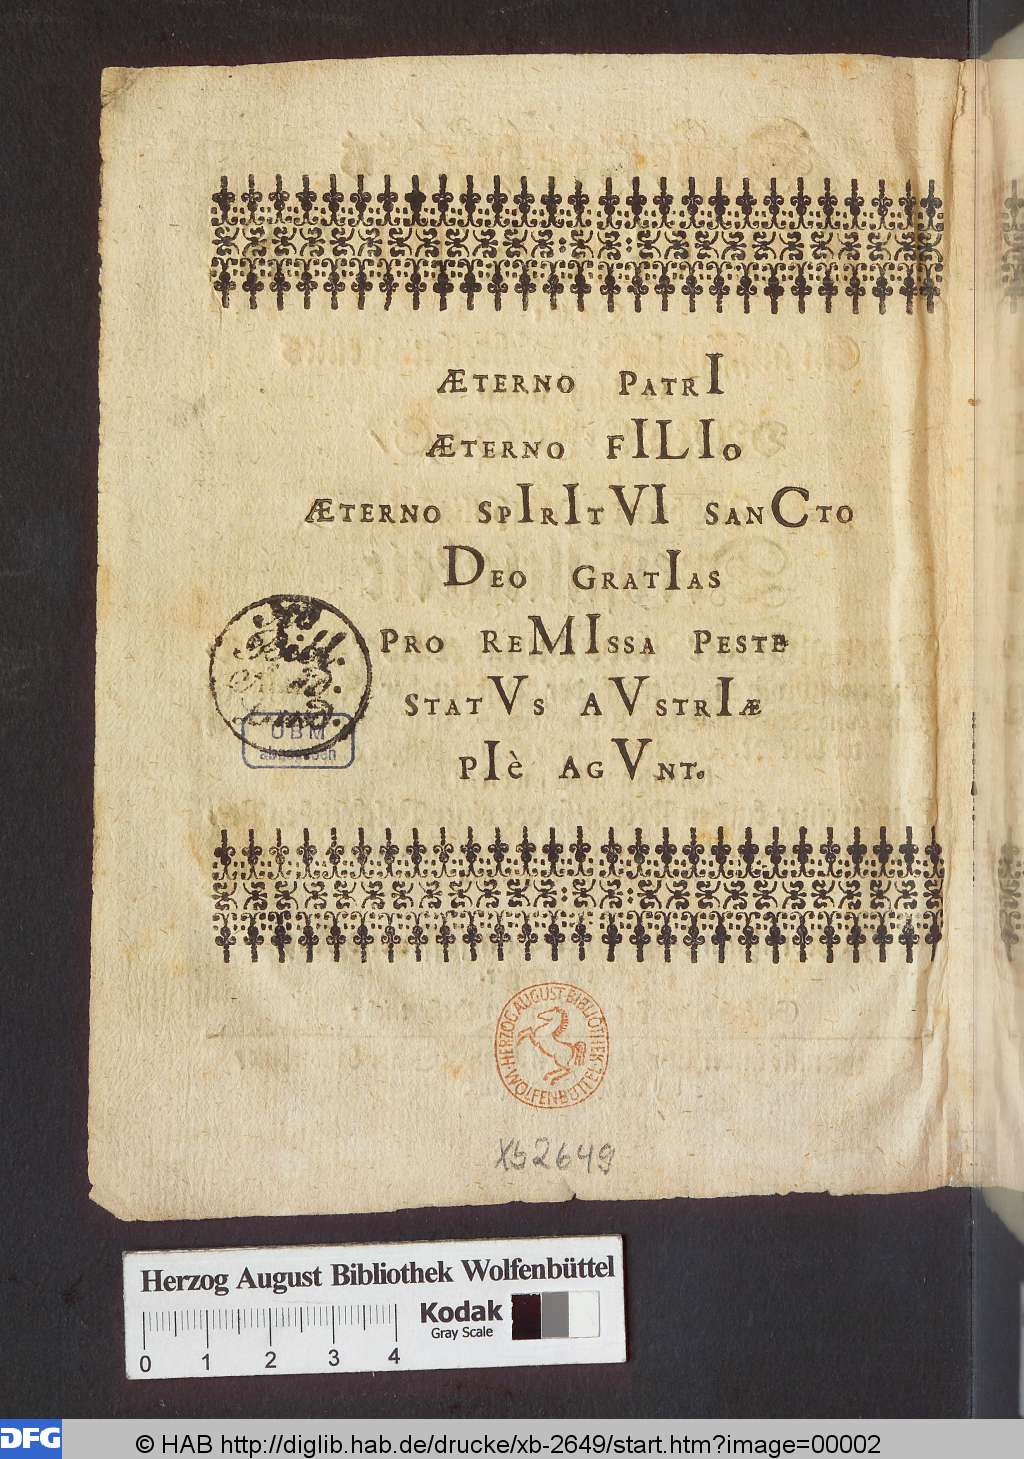 ÆTERNO PATRI
ÆTERNO FILIO
ÆTERNO SPIRITVI SANCTO
DEO GRATIAS
PRO REMISSA PESTE
STATVS AVSTRIÆ
PIè AGVNT.
Bibl.
UBM
abgegeben
HERZOG AUGUST BIBLIOTHEK
WOLFENBÜTTEL
Xb 2649
Herzog August Bibliothek Wolfenbüttel
Kodak
Gray Scale
0 1 2 3 4
DFG
© HAB http://diglib.hab.de/drucke/xb-2649/start.htm?image=00002